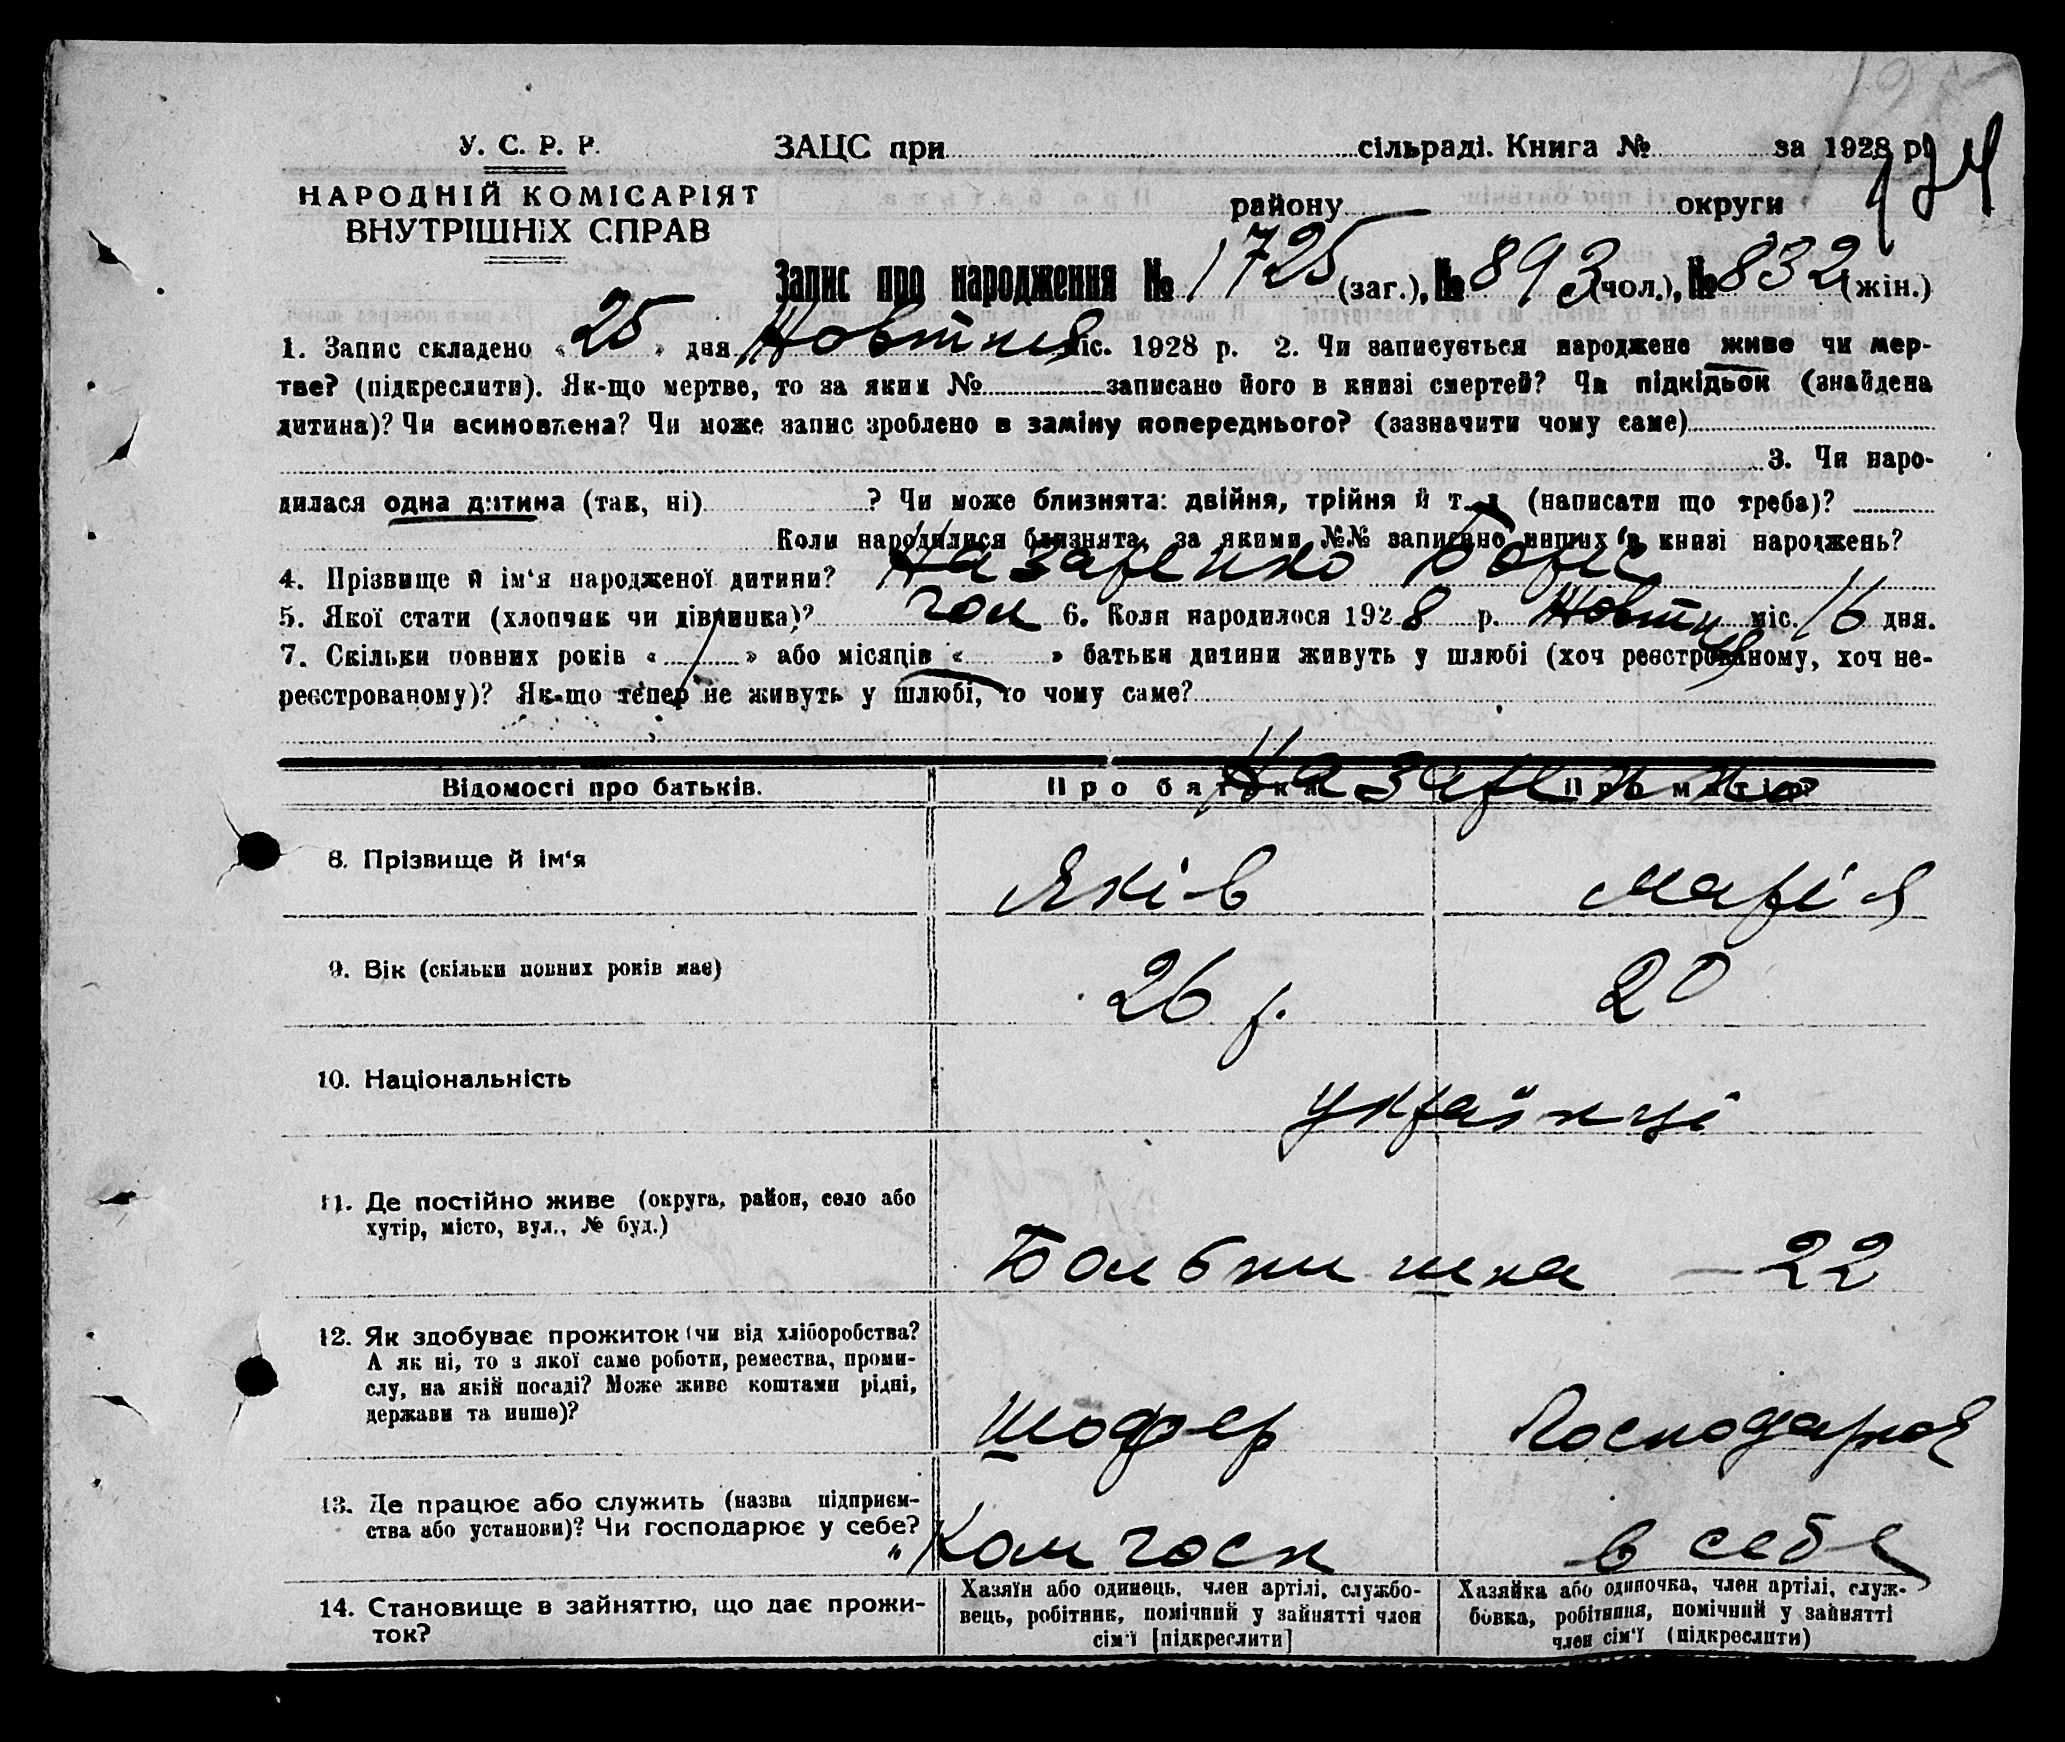 У. С. Р. Р. ЗАЦС при сільраді. Книга № за 1928 р.
194
НАРОДНІЙ КОМІСАРІЯТ
району округи
ВНУТРІШНІХ СПРАВ
Запис про народження № 1725 (заг.), № 893 (чол.), № 832 (жін.)
1. Запис складено « 25 » дня Жовтня міс. 1928 р. 2. Чи записується народжене живе чи мер-
тве? (підкреслити). Як-що мертве, то за яким № записано його в книзі смертей? Чи підкідьок (знайдена
дитина)? Чи всиновлена? Чи може запис зроблено в заміну попереднього? (зазначити чому саме)
3. Чи наро-
дилася одна дитина (так, ні) ? Чи може близнята: двійня, трійня й т. д. (написати що треба)?
Коли народилися близнята, за якими №№ записано инших в книзі народжень?
4. Прізвище й ім'я народженої дитини? Назаренко Борис
5. Якої стати (хлопчик чи дівчинка)? чол 6. Коли народилося 1928 р. Жовтня міс. 16 дня.
7. Скільки повних років « 1 » або місяців « » батьки дитини живуть у шлюбі (хоч реєстрованому, хоч не-
реєстрованому)? Як-що тепер не живуть у шлюбі, то чому саме?
Назаренко
Відомості про батьків. Про батька Про матір?
8. Прізвище й ім'я Яків Марія
9. Вік (скільки повних років має) 26 р. 20
10. Національність українці
11. Де постійно живе (округа, район, село або
хутір, місто, вул., № буд.)
22
12. Як здобуває прожиток (чи від хліборобства?
А як ні, то з якої саме роботи, ремества, проми-
слу, на якій посаді? Може живе коштами рідні,
держави та инше)?
Шофер Господарює
13. Де працює або служить (назва підприєм-
ства або установи)? Чи господарює у себе?
Комгосп в себе
14. Становище в зайняттю, що дає прожи-
ток?
Хазяїн або одинець, член артілі, службо-
вець, робітник, помічний у зайнятті член
сім'ї [підкреслити]
Хазяйка або одиночка, член артілі, служ-
бовка, робітниця, помічний у зайнятті
член сім'ї (підкреслити)